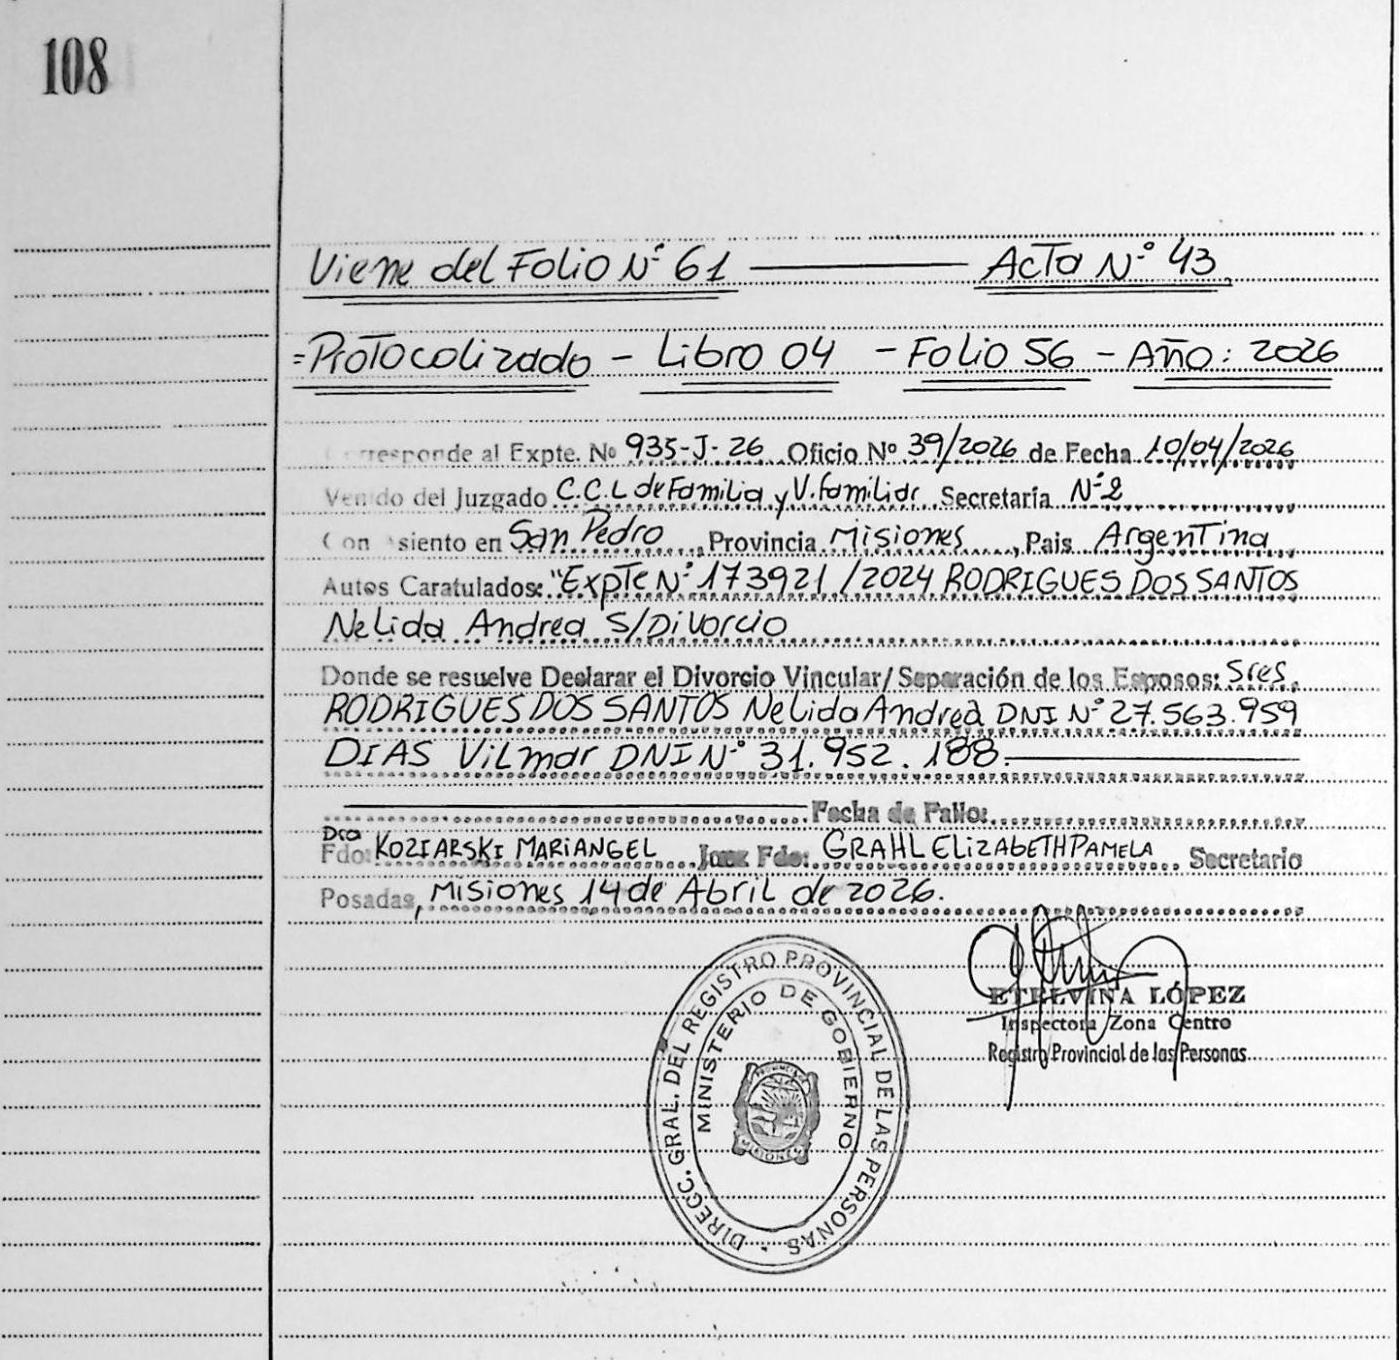 108
Viene del Folio N° 61 ——— Acta N° 43
=Protocolizado - Libro 04 - Folio 56 - Año: 2026
rresponde al Expte. Nº 935-J-26 Oficio Nº 39/2026 de Fecha 10/04/2026
Venido del Juzgado C.C.L de Familia y V. familiar Secretaría N°2
Con siento en San Pedro, Provincia Misiones, Pais Argentina
Autos Caratulados: "Expte N° 173921/2024 RODRIGUES DOS SANTOS
Nelida Andrea S/Divorcio
Donde se resuelve Declarar el Divorcio Vincular/Separación de los Esposos: Sres.
RODRIGUES DOS SANTOS Nelida Andrea DNI N° 27.563.959
DIAS Vilmar DNI N° 31.952.188.
Fecha de Fallo:
Dra
Fdo: KOZIARSKI MARIANGEL Juez Fdo: GRAHL ELIZABETH PAMELA Secretario
Posadas, Misiones 14 de Abril de 2026.
ETELVINA LÓPEZ
Inspectora Zona Centro
Registro Provincial de las Personas
DIRECC. GRAL. DEL REGISTRO PROVINCIAL DE LAS PERSONAS.
MINISTERIO DE GOBIERNO
PROVINCIA
MISIONES